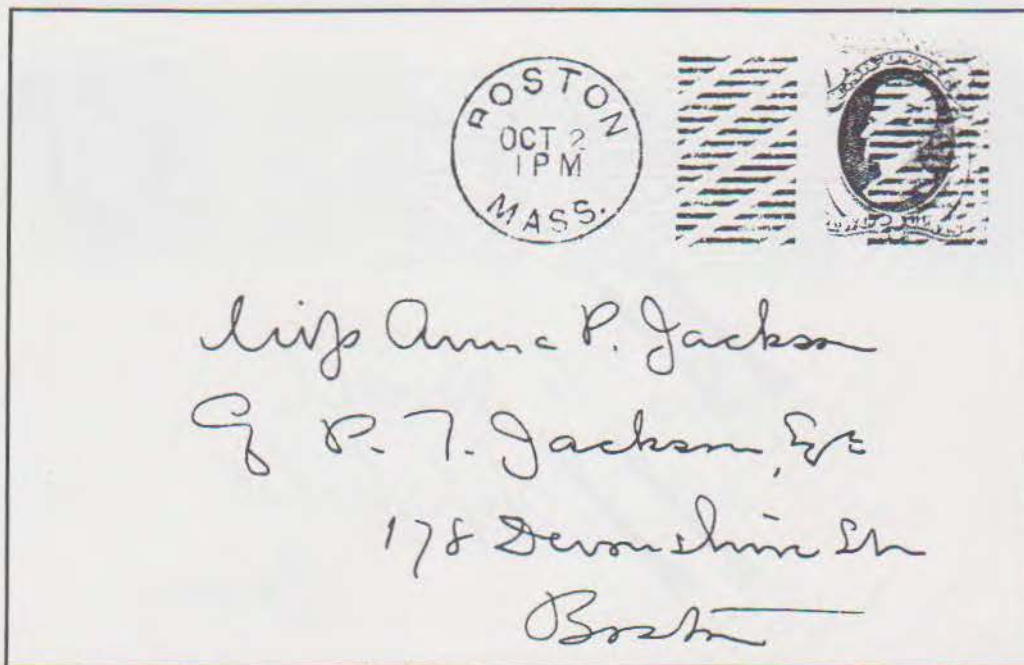 BOSTON
OCT 2
1 PM
MASS.
Miss Anna P. Jackson
P. T. Jackson, Esq
178 Devonshire St
Boston